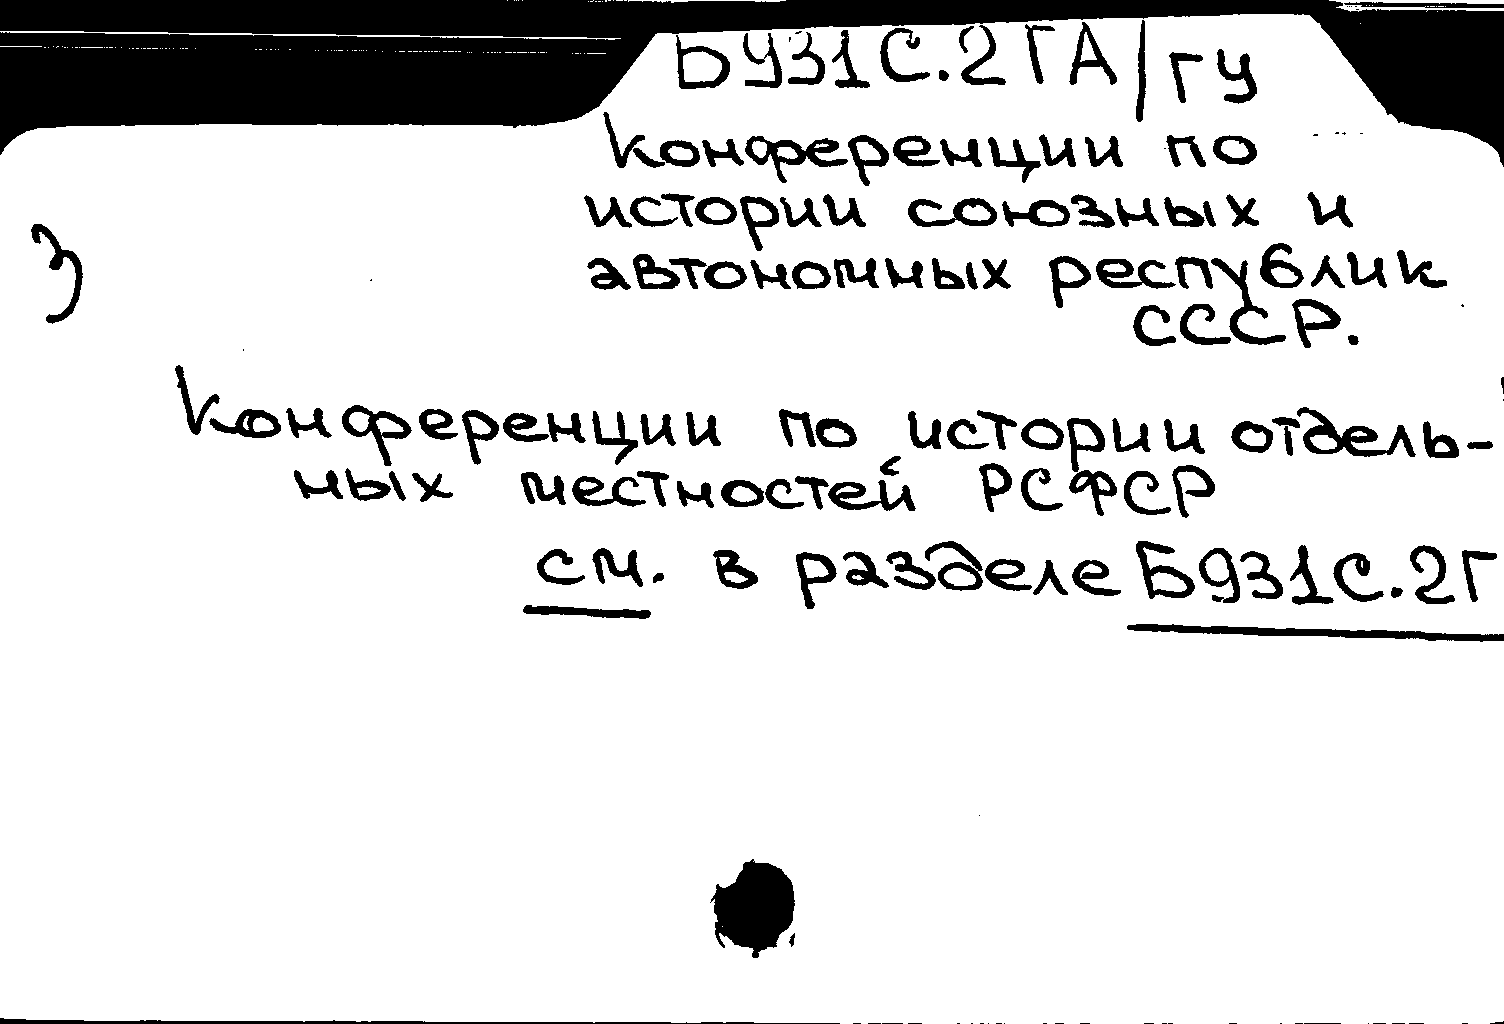 Б931С.2ГА/ГУ
Конференции по
истории союзных и
автономных республик
СССР.
3
Конференции по истории отдель-
ных местностей РСФСР
см. в разделе Б931С.2Г